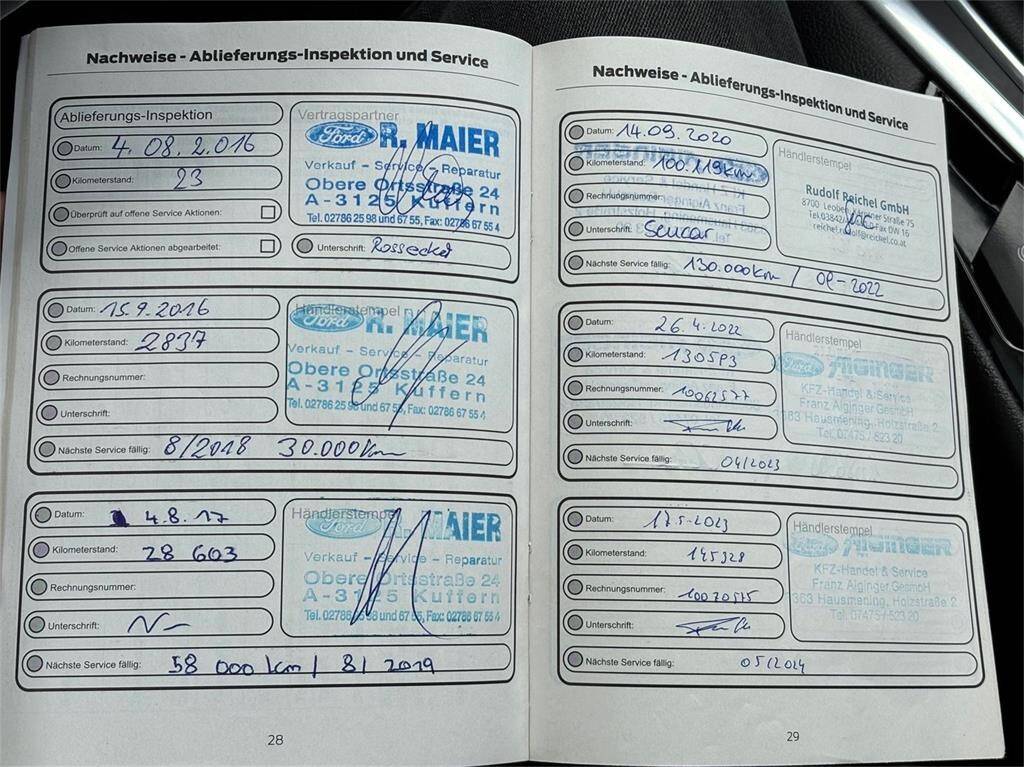 Nachweise - Ablieferungs-Inspektion und Service
Ablieferungs-Inspektion
Datum: 4.08.2016
Kilometerstand: 23
Überprüft auf offene Service Aktionen:
Offene Service Aktionen abgearbeitet:
Vertragspartner
Ford R. MAIER
Verkauf – Service – Reparatur
Obere Ortsstraße 24
A-3125 Kuffern
Tel. 02786 25 98 und 67 55, Fax: 02786 67 55 4
Unterschrift:
Datum: 15.9.2016
Kilometerstand: 2837
Rechnungsnummer:
Unterschrift:
Händlerstempel
Ford R. MAIER
Verkauf – Service – Reparatur
Obere Ortsstraße 24
A-3125 Kuffern
Tel. 02786 25 98 und 67 55, Fax: 02786 67 55 4
Nächste Service fällig: 8/2018 30.000km
Datum: 4.8.17
Kilometerstand: 28 603
Rechnungsnummer:
Unterschrift:
Händlerstempel
Ford R. MAIER
Verkauf – Service – Reparatur
Obere Ortsstraße 24
A-3125 Kuffern
Tel. 02786 25 98 und 67 55, Fax: 02786 67 55 4
Nächste Service fällig: 58 000 km / 8/ 2019
28
Nachweise - Ablieferungs-Inspektion und Service
Datum: 14.09.2020
Kilometerstand: 100.119km
Rechnungsnummer:
Unterschrift:
Händlerstempel
Rudolf Reichel GmbH
8700 Leoben, Straße 75
Tel. 03842 Fax DW 16
reichel.rudolf@reichel.co.at
Nächste Service fällig: 130.000km / 09-2022
Datum: 26.4.2022
Kilometerstand: 130593
Rechnungsnummer: 10062577
Unterschrift:
Händlerstempel
Ford AIGINGER
KFZ-Handel & Service
Franz Aiginger GesmbH
3363 Hausmening, Holzstraße 2
Tel. 07475 / 523 20
Nächste Service fällig: 04/2023
Datum: 17.5.2023
Kilometerstand: 145328
Rechnungsnummer: 10070575
Unterschrift:
Händlerstempel
Ford AIGINGER
KFZ-Handel & Service
Franz Aiginger GesmbH
3363 Hausmening, Holzstraße 2
Tel. 07475 / 523 20
Nächste Service fällig: 05/2024
29